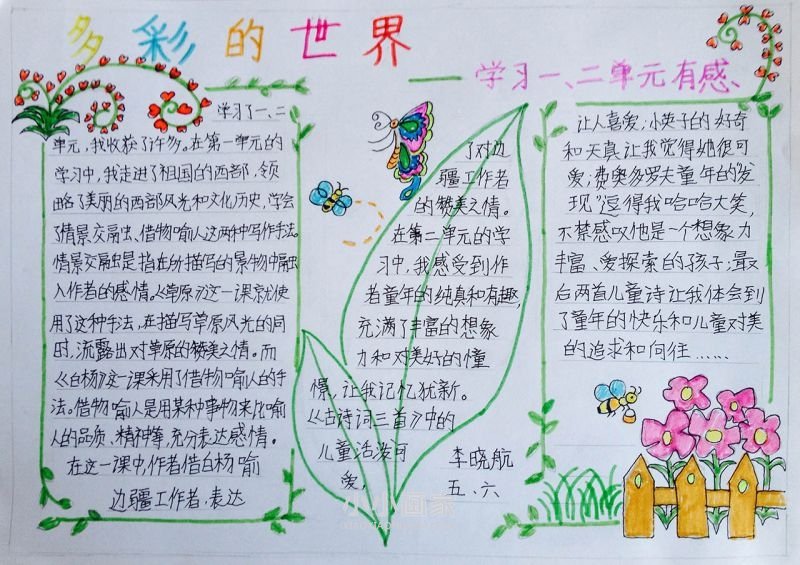 多彩的世界
——学习一、二单元有感、
学习了一、二
单元，我收获了许多。在第一单元的
学习中，我走进了祖国的西部，领
略了美丽的西部风光和文化历史，学会
了情景交融、借物喻人这两种写作手法。
情景交融是指在所描写的景物中融
入作者的感情。《草原》这一课就使
用了这种手法，在描写草原风光的同
时，流露出对草原的赞美之情。而
《白杨》这一课采用了借物喻人的手
法。借物喻人是用某种事物来比喻
人的品质、精神等，充分表达感情。
在这一课中，作者借白杨喻
边疆工作者，表达
了对边
疆工作者
的赞美之情。
在第二单元的学
习中，我感受到作
者童年的纯真和有趣，
充满了丰富的想象
力和对美好的憧
憬，让我记忆犹新。
《古诗词三首》中的
儿童活泼可
爱，
李晓航
五、六
让人喜爱；小英子的好奇
和天真让我觉得她很可
爱，费奥多罗夫童年的“发
现”逗得我哈哈大笑，
不禁感叹他是一个想象力
丰富、爱探索的孩子；最
后两首儿童诗让我体会到
了童年的快乐和儿童对美
的追求和向往……
小小画家